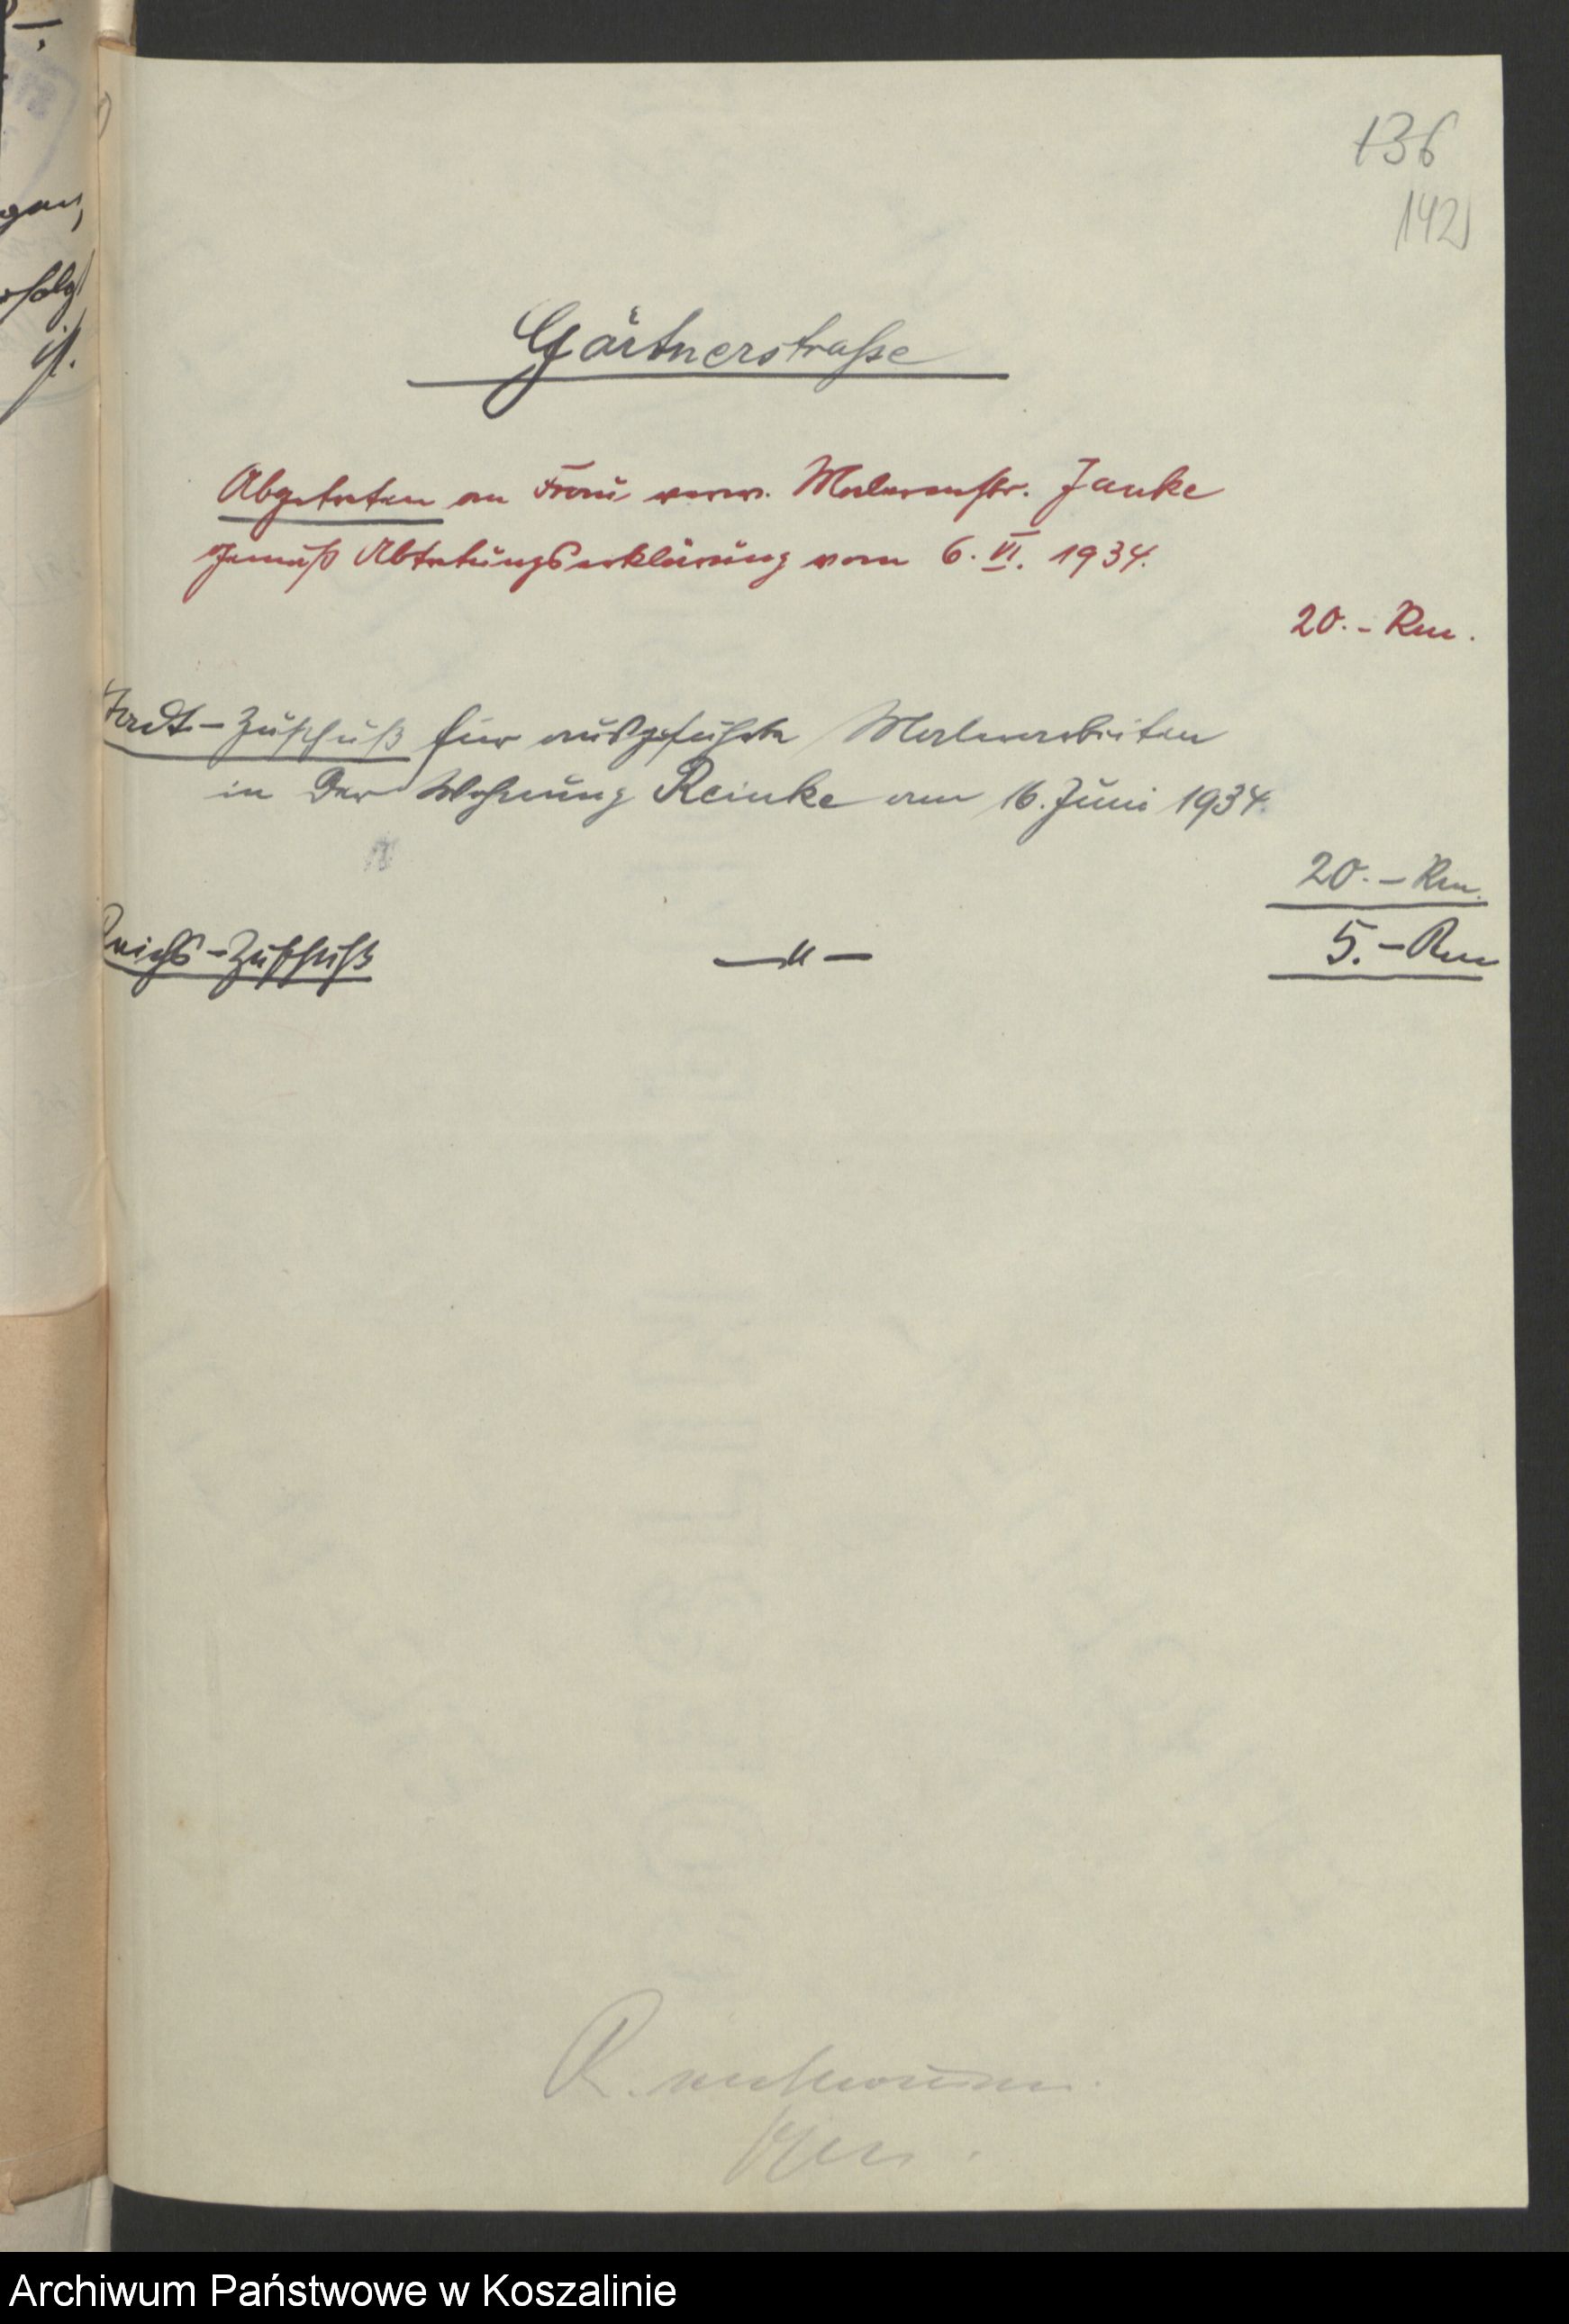 136
142
Gärtnerstraße
Abgetreten an Frau verw. Malermstr. Janke
gemäß Abtretungserklärung vom 6. VI. 1934.
20.- Rm.
Stadt-Zuschuß für ausgeführte Malerarbeiten
in der Wohnung Reinke am 16. Juni 1934.
20.- Rm.
Reichs-Zuschuß —"— 5.- Rm
Archiwum Państwowe w Koszalinie